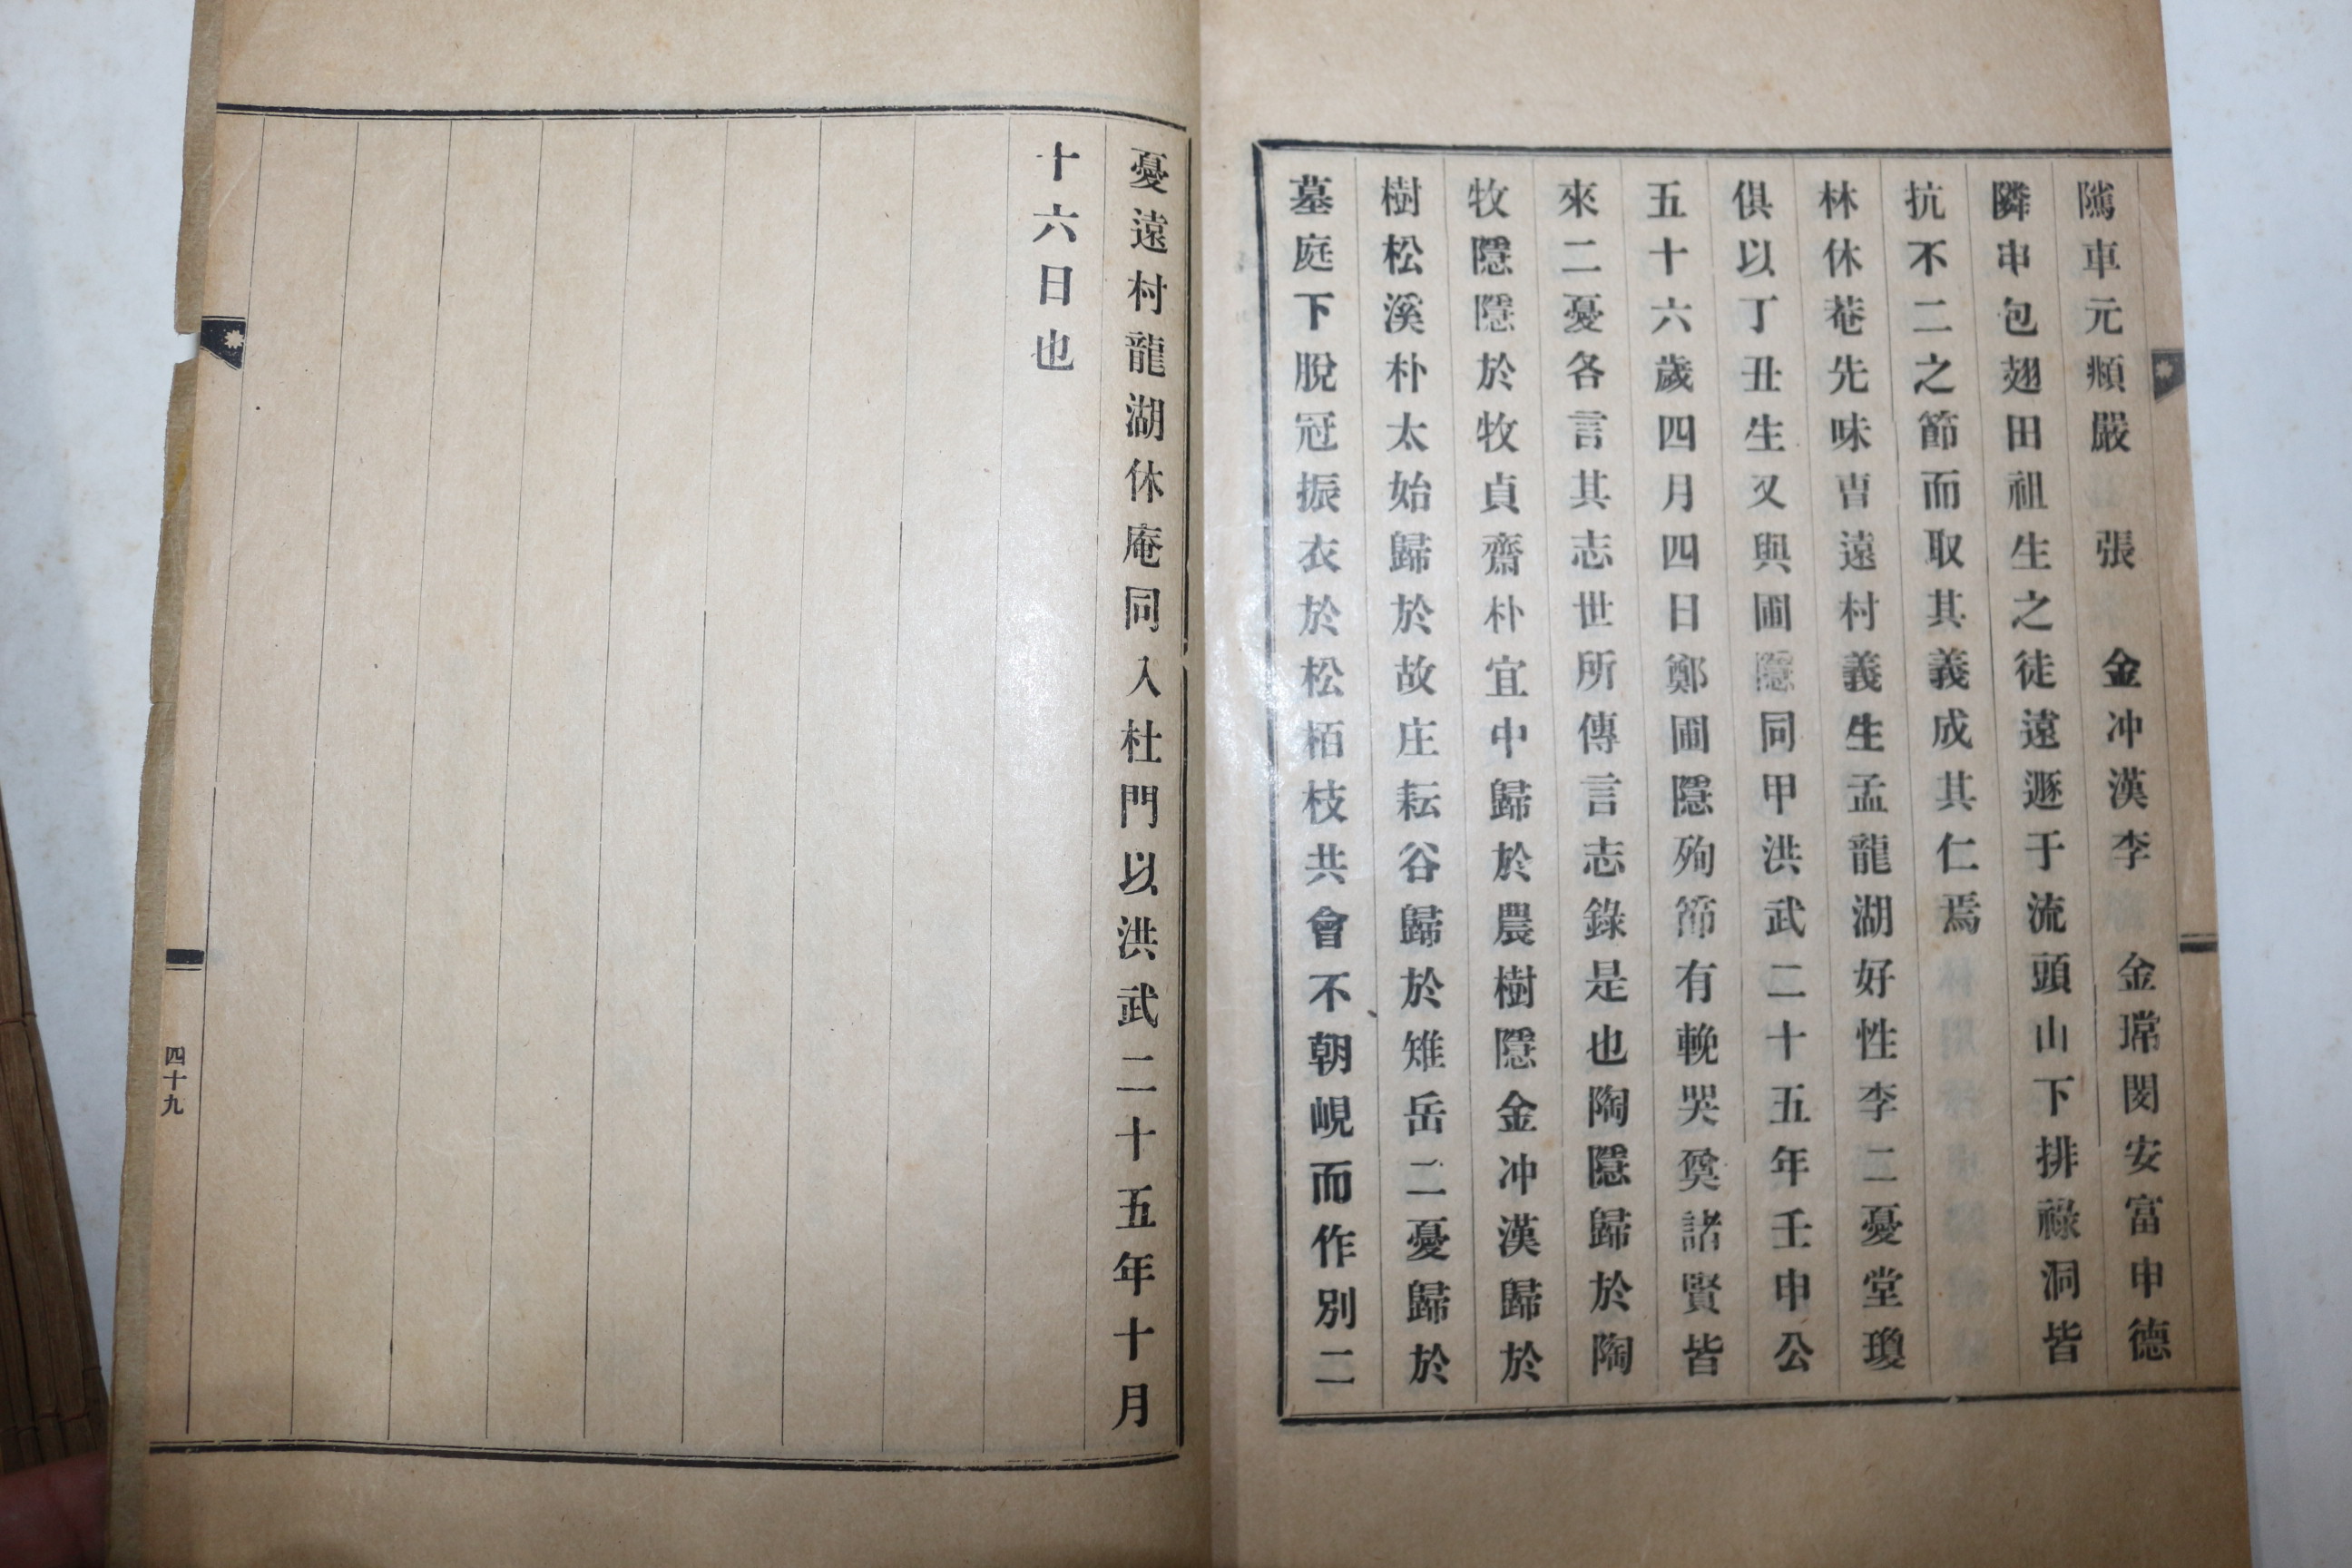 隲車元頫嚴　張　金冲漢李　金瑺閔安富申德
隣申包翅田祖生之徒遠遯于流頭山下排祿洞皆
抗不二之節而取其義成其仁焉
林休菴先味曺遠村義生孟龍湖好性李二憂堂瓊
俱以丁丑生又與圃隱同甲洪武二十五年壬申公
五十六歲四月四日鄭圃隱殉節有輓哭奠諸賢皆
來二憂各言其志世所傳言志錄是也陶隱歸於陶
牧隱隱於牧貞齋朴宜中歸於農樹隱金冲漢歸於
樹松溪朴太始歸於故庄耘谷歸於雉岳二憂歸於
墓庭下脫冠振衣於松栢枝共會不朝峴而作別二
憂遠村龍湖休庵同入杜門以洪武二十五年十月
十六日也
四十九